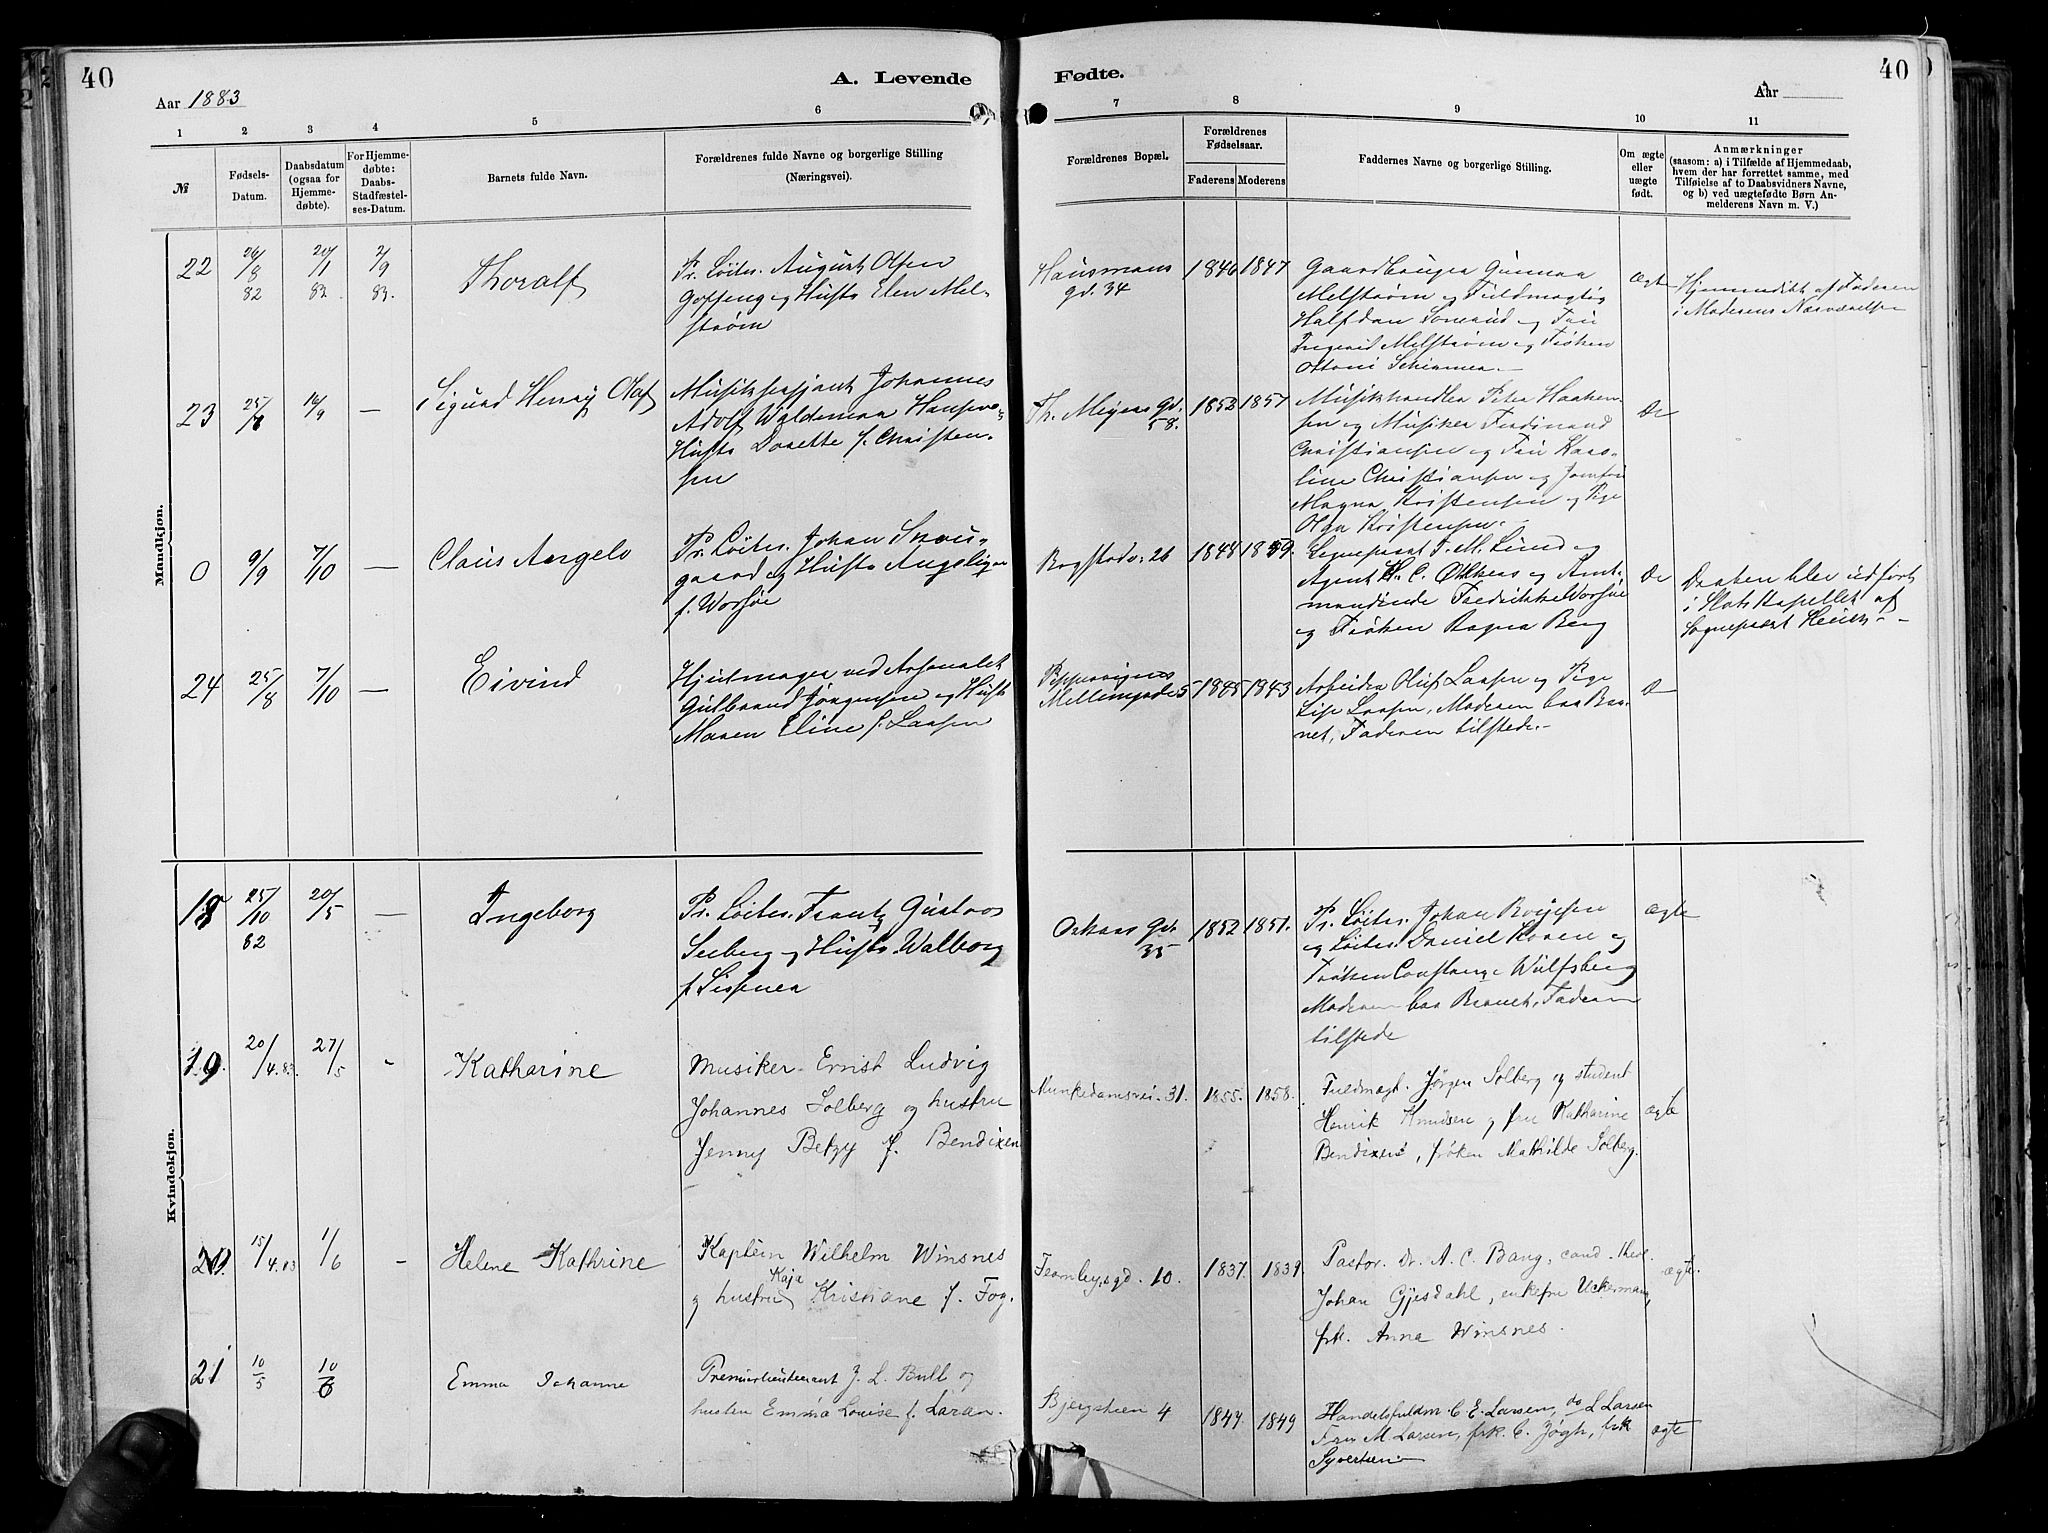 40
A. Levende
Aar 1883
1 2 3 4 5 6
№
Fødsels-
Datum.
Daabsdatum
(ogsaa for
Hjemme-
døbte).
For Hjemme-
døbte:
Daabs-
Stadfæstel-
ses-Datum.
Barnets fulde Navn.
Forældrenes fulde Navne og borgerlige Stilling
(Næringsvei).
Mandkjøn.
22
26/8 82
20/1 83.
2/9 83.
Thoralf
Pr. Löitn. August Olsen
og Hustr. Elen Mel-
strøm
23
14/9
—
Sigurd Henry Olaf
Musiksersjant Johannes
Adolf Waldemar Hansen
Hustr. Dorette f. Christen-
sen
0
9/9
7/10
—
Claus Angelo
Pr. Löitn. Johan Snou-
gaard og Hustr. Angeligue
f. Worsöe
24
25/8
7/10
—
Eivind
Hjulmager ved Arsenalet
Gulbrand Jörgensen og Hustr.
Maren Eline f. Larsen
Kvindekjøn.
18
25/10 82
20/5
—
Ingeborg
Pr. Löitn. Frantz Gustav
Seeberg og Hustr. Walborg
19.
20/4.83.
27/5
-
Katharine
Musiker Ernst Ludvig
Johannes Solberg og hustru
Jenny Betzy f. Bendixen
20.
15/4.83
1/6
-
Helene Kathrine
Kaptein Wilhelm Winsnes
Kaja
og hustru Kristiane f. Fog.
21
10/5
10/6
Emma Johanne
Premierlieutenant J. L. Bull og
hustru Emma Louise f. Larsen.
Fødte.
40
Aar
7 8 9 10 11
Forældrenes Bopæl.
Forældrenes
Fødselsaar.
Faderens Moderens
Faddernes Navne og borgerlige Stilling.
Om ægte
eller
uægte
født.
Anmærkninger
(saasom: a) i Tilfælde af Hjemmedaab,
hvem der har forrettet samme, med
Tilføielse af to Daabsvidners Navne,
og b) ved uægtefødte Børn An-
melderens Navn m. V.)
Hausmans
gd. 34
1846 1847
Gaardbruger Gunnar
Melstrøm og Fuldmægtig
Halfdan og Fru
Melstrøm og Frøken
Ottoni Schirmer.
Ægte
Hjemmedöbt af Faderen
i Moderens Nærværelse
Th. Meyers Gd.
58.
1853 1857
Musikhandler Peter Haaken-
sen og Musiker Ferdinand
Christiansen og Fru Karo-
line Christiansen og Jomfru
Magna Kristensen og Pige
Olga Kristensen.
Do
Bogstadv. 26
1848 1859.
Sogneprest F. M. Lund og
Agent H. C. og Amt-
mandinde Fredrikke Worsöe
og Frøken Ragna Berg
Do
Daaben blev udfört
i Slots Kapellet af
Sogneprest Heuch.
Pipervigens
Mellemgade 5
1845 1843
Arbeider Oluf Larsen og Pige
Lise Larsen, Moderen bar Bar-
net, Faderen tilstede.
Do
Oskars Gd.
35
1852 1851.
Pr. Löitn. Johan Boyesen
og Löitn. Daniel Koren og
Frøken Constance Wulfsberg
Moderen bar Barnet, Faderen
tilstede
Ægte
Munkedamsvei. 31.
1855. 1858.
Fuldmægt. Jørgen Solberg og student
Henrik Knudsen og fru Katharine
Bendixen, frøken Mathilde Solberg.
ægte
Fearnleysgd. 10.
1837. 1839.
Pastor Dr. A. C. Bang, cand. theol.
Johan Gjesdahl, enkefru Uckermann,
frk. Anna Winsnes.
ægte
Bjergstien 4
1847. 1849
Handelsfuldm. C. E. Larsen, do L Larsen
Fru M Larsen, frk. C. Jøgh, frk
Syvertsen
ægte